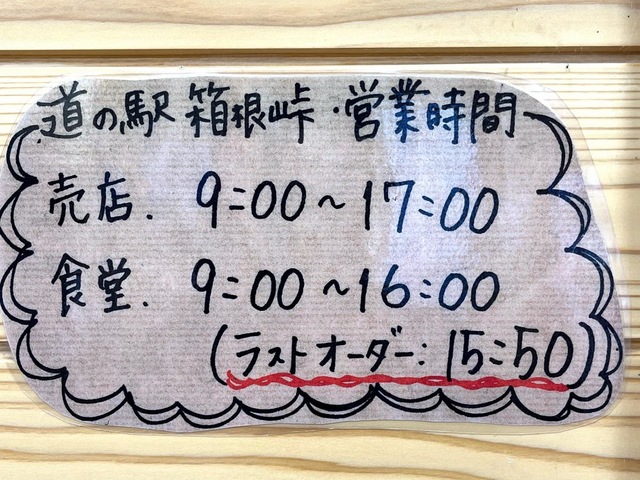 道の駅 箱根峠・営業時間
売店. 9:00~17:00
食堂. 9:00~16:00
(ラストオーダー:15:50)